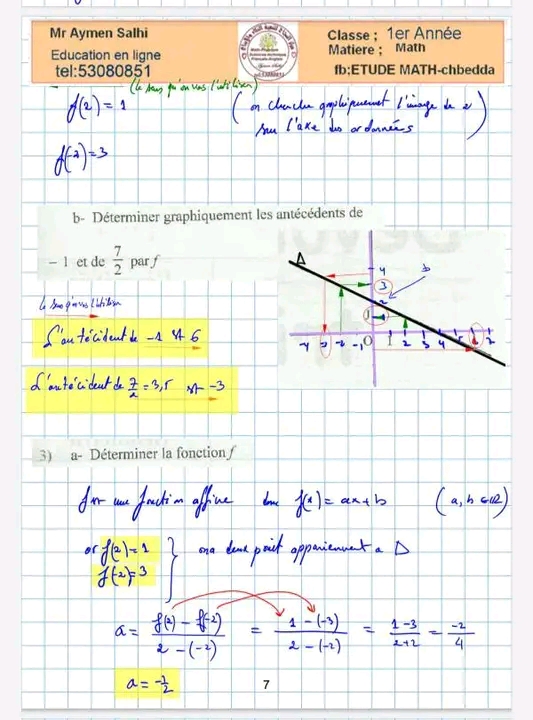 Mr Aymen Salhi
Education en ligne
tel:53080851
Classe ; 1er Année
Matiere ; Math
fb:ETUDE MATH-chbedda
(le sens qu'on vas l'utiliser)
f(2) = 1
(on cherche graphiquement l'image de 2
sur l'axe des ordonnées)
f(-2) = 3
b- Déterminer graphiquement les antécédents de
– 1 et de 7/2 par f
le sens qu'on vas l'utiliser
L'antécident de -1 est 6
L'antécident de 7/2 = 3,5 est -3
Δ
b
4
3
2
1
-4 -3 -2 -1 0 1 2 3 4 5 6 7
3) a- Déterminer la fonction f
f est une fonction affine donc f(x) = ax+b (a, b ∈ IR)
or f(2) = 1
f(-2) = 3
on a deux point appartiennent a Δ
a = f(2) - f(-2) / 2 - (-2) = 1 - (-3) / 2 - (-2) = 1-3 / 2+2 = -2 / 4
a = -1/2
7